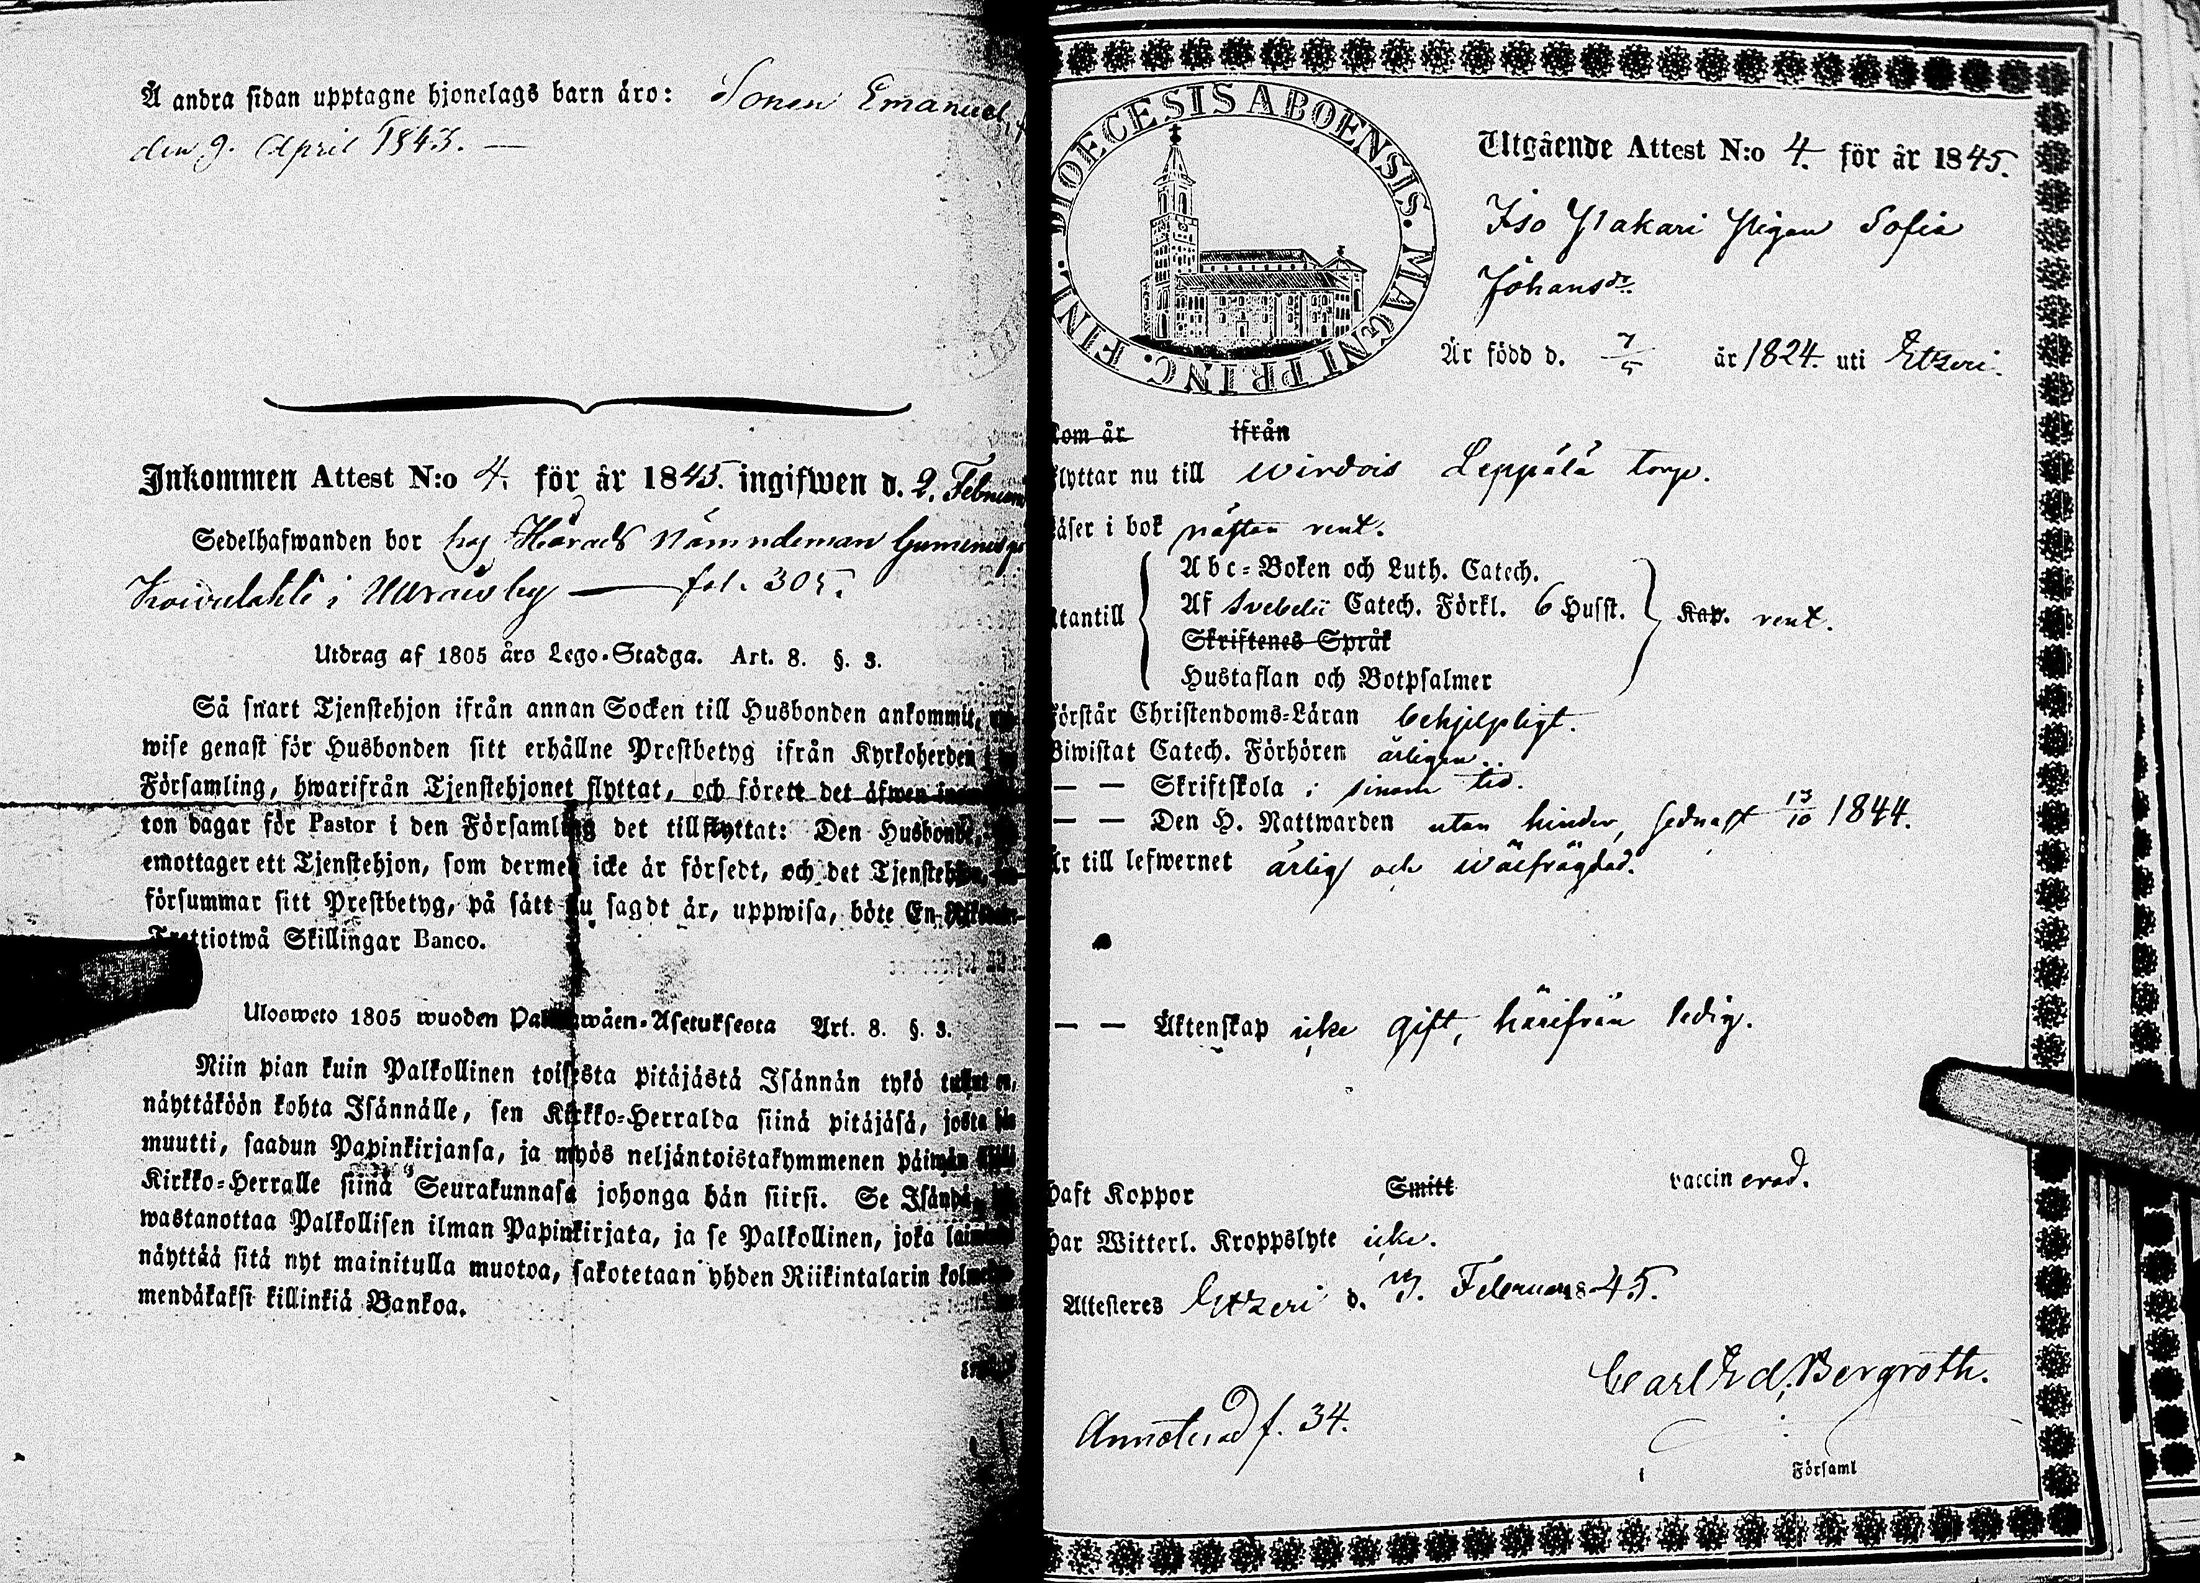 Å andra sidan upptagne hjonelags barn äro: Sonen Emanuel
den 9. April 1843. —
Inkommen Attest N:o 4. för år 1845. ingifwen d. 2. Februari
Sedelhafwanden bor hos Härads Nämndeman
i by — fol. 305.
Utdrag af 1805 års Lego-Stadga. Art. 8. §. 3.
Så snart Tjenstehjon ifrån annan Socken till Husbonden ankommit,
wise genast för Husbonden sitt erhållne Prestbetyg ifrån Kyrkoherden i
Församling, hwarifrån Tjenstehjonet flyttat, och förete det äfwen
ton dagar för Pastor i den Församling det tillflyttat: Den Husbonde,
emottager ett Tjenstehjon, som dermed icke är försedt, och det Tjenstehjon,
försummar sitt Prestbetyg, på sätt nu sagdt är, uppwisa, böte En
Trettiotwå Skillingar Banco.
Ulosweto 1805 wuoden Palkkawäen-Asetuksesta Art. 8. §. 3.
Niin pian kuin Palkollinen toisesta pitäjästä Isännän tykö tullut on,
näyttäköön kohta Isännälle, sen Kirkko-Herralda siinä pitäjäsä, josta hän
muutti, saadun Papinkirjansa, ja myös neljäntoistakymmenen päiwän
Kirkko-Herralle siinä Seurakunnasa johonga hän siirsi. Se Isändä,
wastanottaa Palkollisen ilman Papinkirjata, ja se Palkollinen, joka
näyttää sitä nyt mainitulla muotoa, sakotetaan yhden Riikintalarin
mendäkaksi killinkiä Bankoa.
DIOECESIS ABOENSIS. MAGNI PRINC. FINL.
Utgående Attest N:o 4. för år 1845.
Iso Ylakari Pigan Sofia
Johansdr.
Är född d. 7/5 år 1824. uti Etzeri.
Kom år ifrån
flyttar nu till Wirdois Leppälä torp.
Läser i bok nästan rent.
Abc-Boken och Luth. Catech.
Af Svebelii Catech. Förkl. 6 Husst.
Utantill Kap. rent.
Skriftenes Språk
Hustaflan och Botpsalmer
Förstår Christendoms-Läran behjelpligt.
Biwistat Catech. Förhören årligen.
— — Skriftskola i sinom tid.
— — Den H. Nattwarden utan hinder, sednast 13/10 1844.
Är till lefwernet ärlig och wälfrägdad.
— — Äktenskap icke gift, härifrån ledig.
haft Koppor Smitt vaccinerad.
Har Witterl. Kroppslyte icke.
Attesteres Etzeri d. Februari 1845.
Carl Ed. Bergroth.
Annoterad f. 34.
Församl